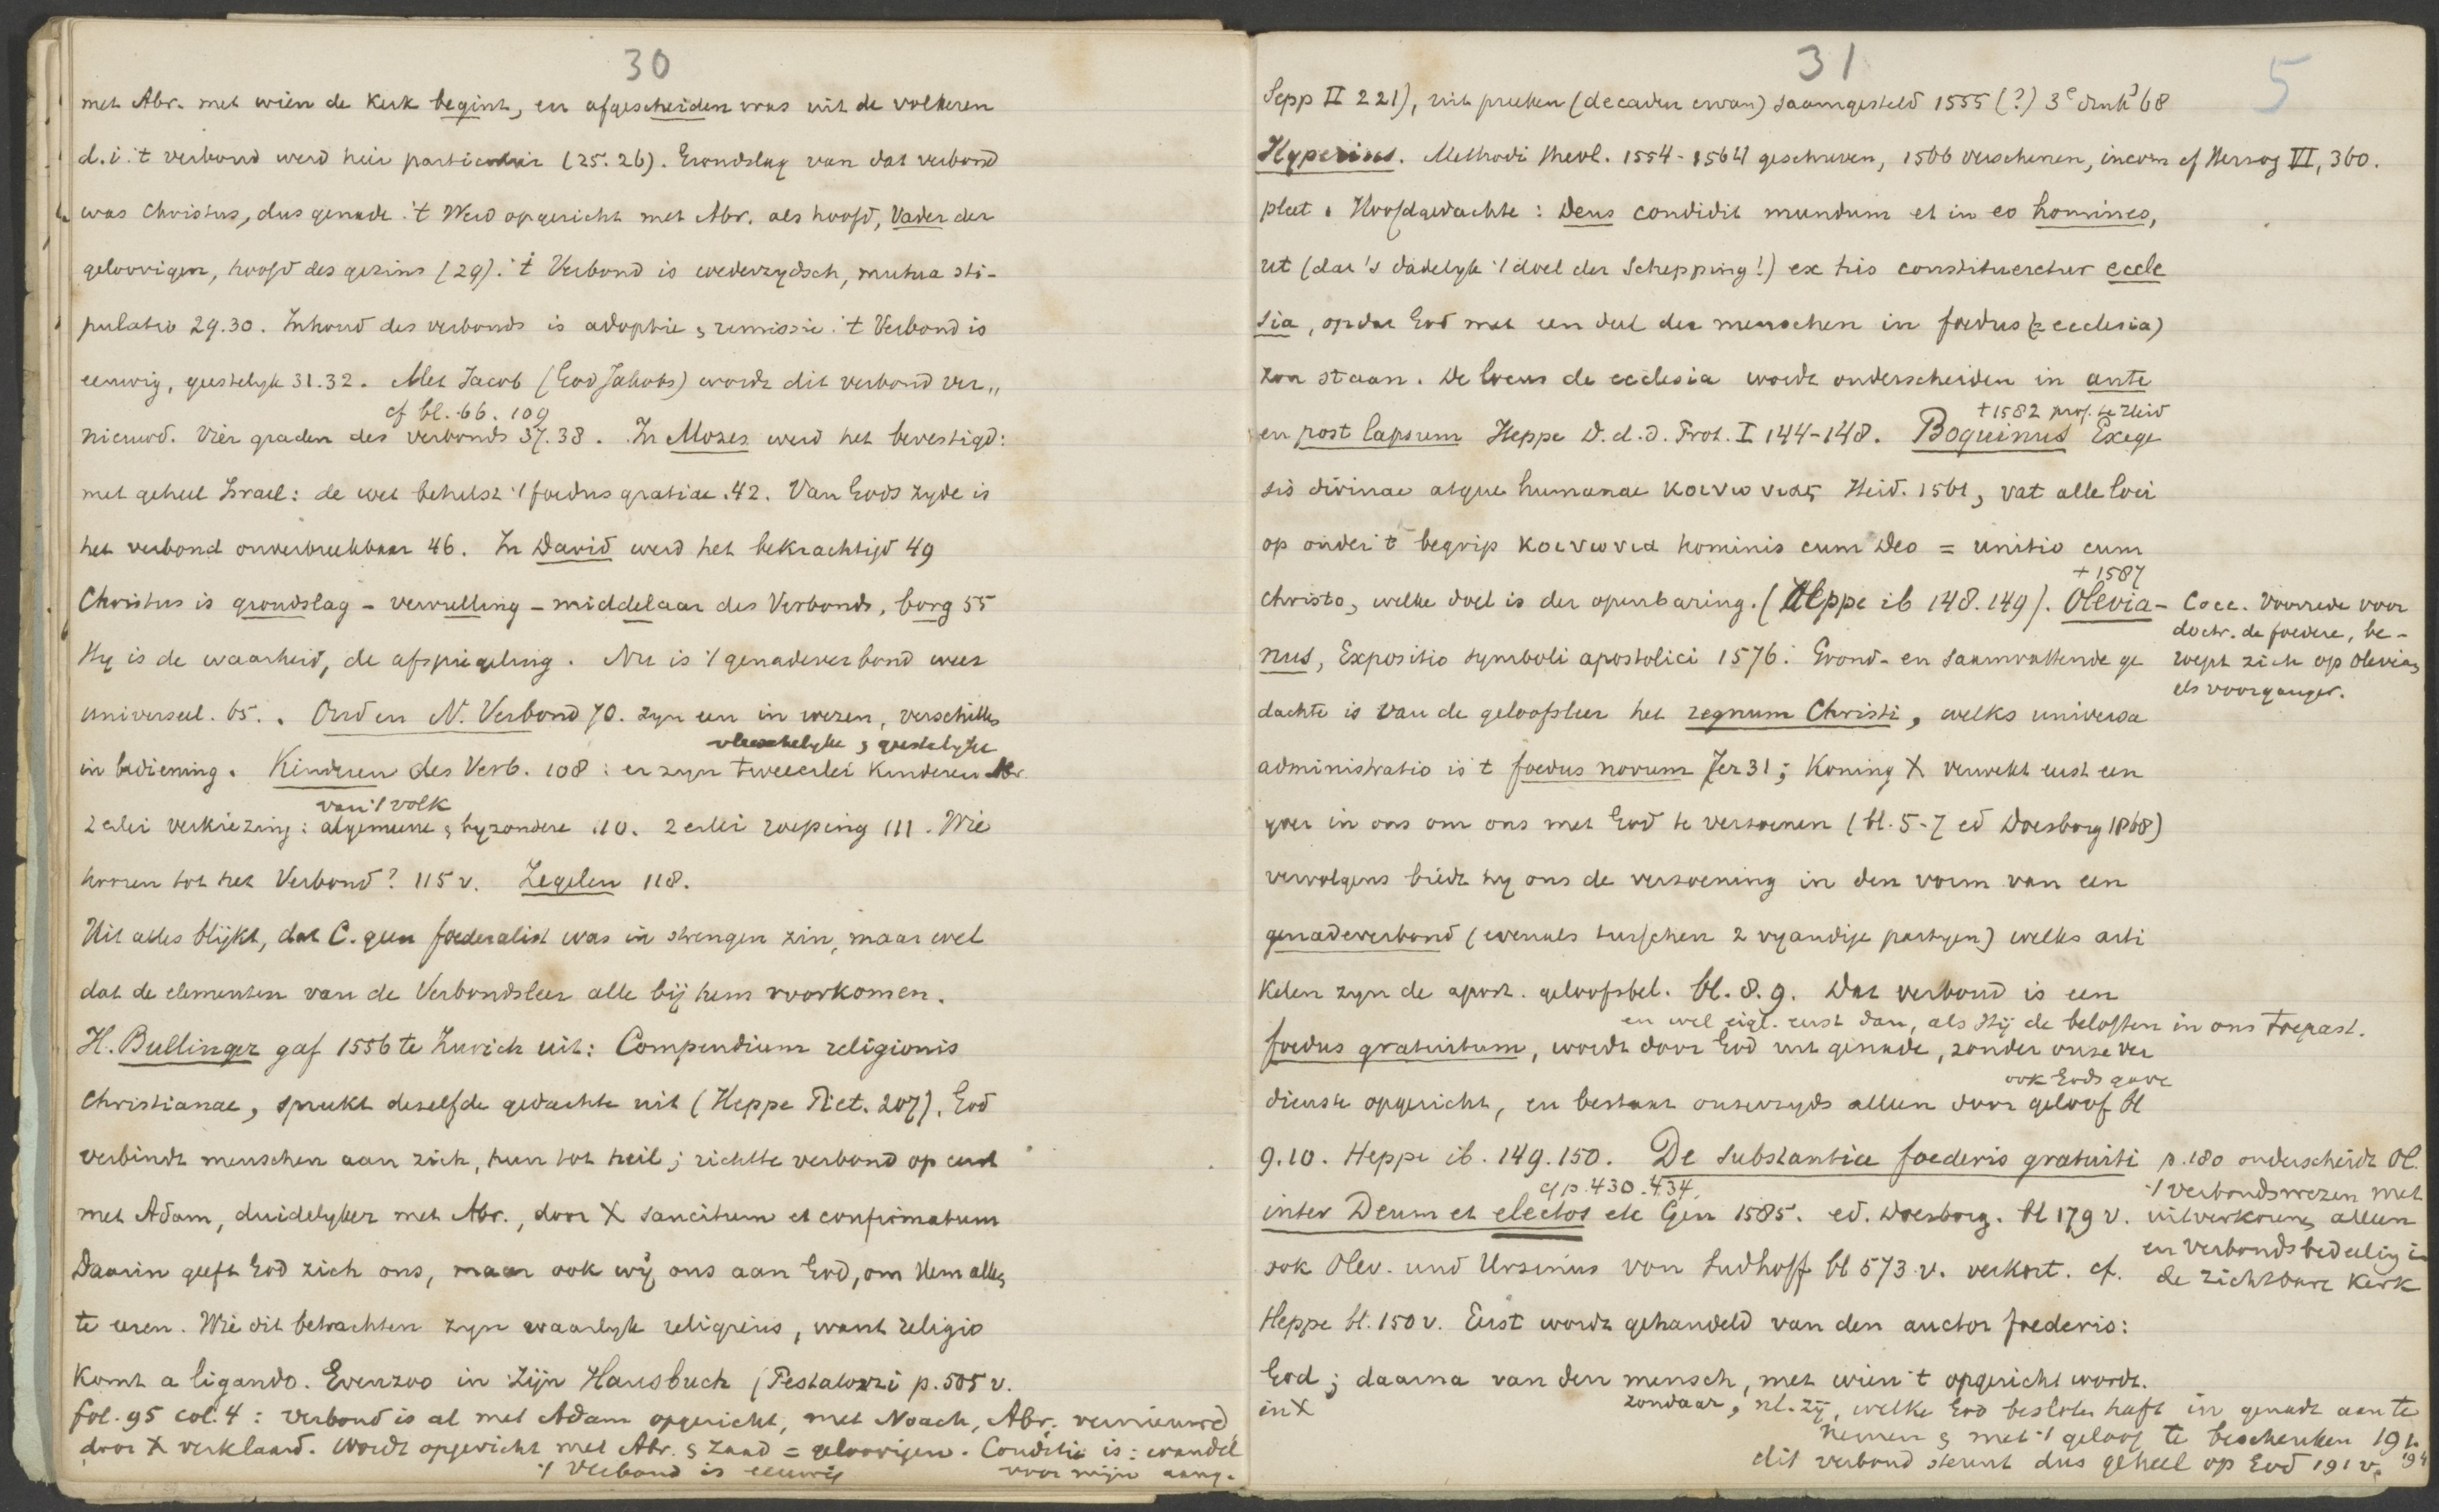 30
met Abr. met wien de Kerk begint, en afgescheiden was uit de volkeren
d.i. 't verbond werd hier particulier (25. 26). Grondslag van dat verbond
was Christus, dus genade. 't Werd opgericht met Abr. als hoofd, Vader der
geloovigen, hoofd des gezins (29). 't Verbond is wederzydsch, mutua sti-
pulatio 29.30. Inhoud des verbonds is adoptie, remissie. 't Verbond is
eeuwig, geestelyk 31.32. Met Jacob (God Jakobs) wordt dit verbond ver„
cf bl. 66. 109
nieuwd. Vier graden des verbonds 37.38. In Mozes werd het bevestigd:
met geheel Israel: de wet behelst 't foedus gratiae. 42. Van Gods zyde is
het verbond onverbreekbaar 46. In David werd het bekrachtigd 49
Christus is grondslag - vervulling - middelaar des Verbonds, borg 55
Hy is de waarheid, de afspiegeling. Nu is 't genadeverbond weer
universeel. 65. . Oud en N. Verbond 70. zyn een in wezen, verschillen
vleeschelyke & geestelyke
in bediening. Kinderen des Verb. 108 : er zyn tweeerlei Kinderen Abr.
van 't volk
2erlei verkiezing: algemeene & byzondere 110. 2erlei roeping 111. Wie
hooren tot het Verbond? 115 v. Zegelen 118.
Uit alles blijkt, dat C. geen foederalist was in strengen zin, maar wel
dat de elementen van de Verbondsleer alle bij hem voorkomen.
H. Bullinger gaf 1556 te Zurich uit: Compendium religionis
Christianae, spreekt dezelfde gedachte uit (Heppe Piet. 207). God
verbindt menschen aan zich, hun tot heil; richtte verbond op eerst
met Adam, duidelyker met Abr., door X sancitum et confirmatum
Daarin geeft God zich ons, maar ook wij ons aan God, om Hem alleen
te eeren. Wie dit betrachten zyn waarlyk religieus, want religio
Komt a ligando. Evenzoo in zijn Hausbuch (Pestalozzi p. 505 v.
fol. 95 col. 4 : verbond is al met Adam opgericht, met Noach, Abr. vernieuwd
door X verklaard. Wordt opgericht met Abr. & zaad = geloovigen. Conditie is : wandel
't Verbond is eeuwig voor mijn aang.
31
5
Sepp II 221), uit preeken (decaden ervan) saamgesteld 1555 (?) 3e druk '68
Hyperius. Methodi theol. 1554 - 1564 geschreven, 1566 verschenen, incom cf Herzog VI, 360.
pleet. Hoofdgedachte : Deus condidit mundum et in eo homines,
ut (dat 's dadelyk 't doel der Schepping!) ex his constitueretur eccle
sia, opdat God met een deel der menschen in foedus (= ecclesia)
zou staan. De locus de ecclesia wordt onderscheiden in ante
+ 1582 prof. te Heid
en post lapsum Heppe D. d. d. Prot. I 144-148. Boquinus Exege
sis divinae atque humanae κοινωνιας Heid. 1561, vat alle loci
op onder 't begrip κοινωνια hominis cum Deo = unitio cum
+ 1587
Christo, welke doel is der openbaring. (Heppe ib 148.149). Olevia-
nus, Expositio symboli apostolici 1576. Grond- en saamvattende ge
dachte is van de geloofsleer het regnum Christi, welks universa
administratio is 't foedus novum Jer 31; Koning X verwekt eerst een
yver in ons om ons met God te verzoenen (bl. 5-7 ed Doesborg 1868)
vervolgens biedt hy ons de verzoening in den vorm van een
genadeverbond (evenals tusschen 2 vyandige partyen) welks arti
Kelen zyn de apost. geloofsbel. bl. 8. 9. Dat verbond is een
en wel eigl. eerst dan, als Hij de beloften in ons toepast.
foedus gratuitum, wordt door God uit genade, zonder onze ver
ook Gods gave
dienste opgericht, en bestaat onzerzyds alleen door geloof bl
9.10. Heppe ib. 149.150. De substantia foederis gratuiti
cf p. 430. 434.
inter Deum et electos etc Gen 1585. ed. Doesborg. bl 179 v.
ook Olev. und Ursinus von Sudhoff bl 573 v. verkort. cf.
Heppe bl. 150 v. Eerst wordt gehandeld van den auctor foederis:
God; daarna van den mensch, met wien 't opgericht wordt.
in X zondaar, nl. zij, welke God besloten heeft in genade aan te
nemen & met 't geloof te beschenken 191.
dit verbond steunt dus geheel op God 191 v. 194
Cocc. Voorrede voor
doctr. de foedere, be-
roept zich op Olevian
als voorganger.
p. 180 onderscheidt Ol.
't verbondswezen met
uitverkoren alleen
en verbondsbedeeling in
de zichtbare Kerk